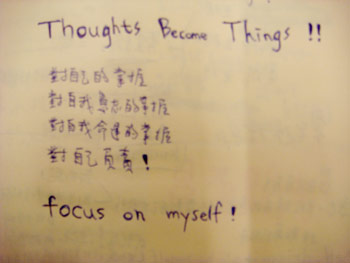 Thoughts Become Things !!
對自己的掌握
對自我意志的掌握
對自我命運的掌握
對自己負責!
focus on myself!